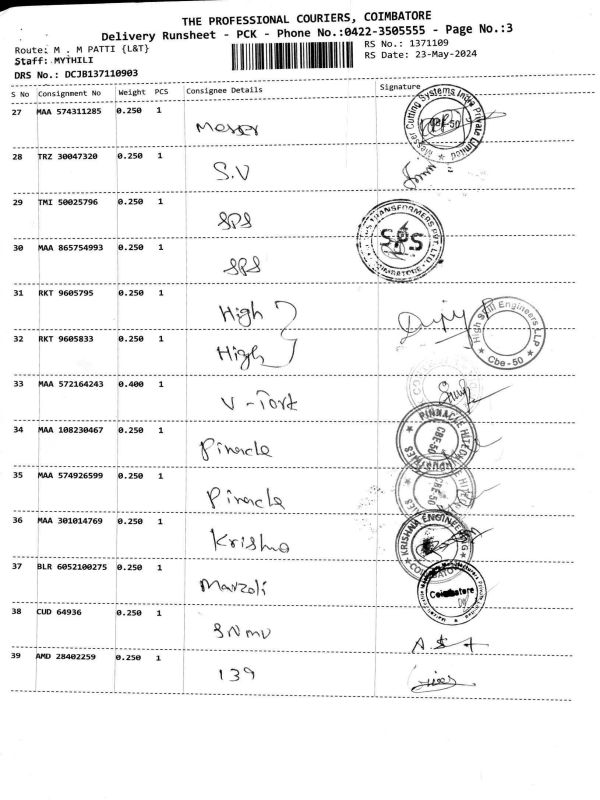 THE PROFESSIONAL COURIERS, COIMBATORE
Delivery Runsheet - PCK - Phone No.:0422-3505555 - Page No.:3
Route: M . M PATTI {L&T} RS No.: 1371109
Staff: MYTHILI RS Date: 23-May-2024
DRS No.: DCJB137110903
S No Consignment No Weight PCS Consignee Details Signature
27 MAA 574311285 0.250 1 Messer
28 TRZ 30047320 0.250 1 S.V
29 TMI 50025796 0.250 1 SPS
30 MAA 865754993 0.250 1 SPS
SPS
31 RKT 9605795 0.250 1 High
High Skill Engineers LLP
Cbe-50
32 RKT 9605833 0.250 1 High
33 MAA 572164243 0.400 1 V-Tork
34 MAA 108230467 0.250 1 Pinacle
CBE-50
35 MAA 574926599 0.250 1 Pinacle
CBE-50
36 MAA 301014769 0.250 1 Krishna
KRISHNA ENGINEERING
37 BLR 6052100275 0.250 1 Marzoli
Coimbatore
38 CUD 64936 0.250 1 SNMV
39 AMD 28402259 0.250 1 139